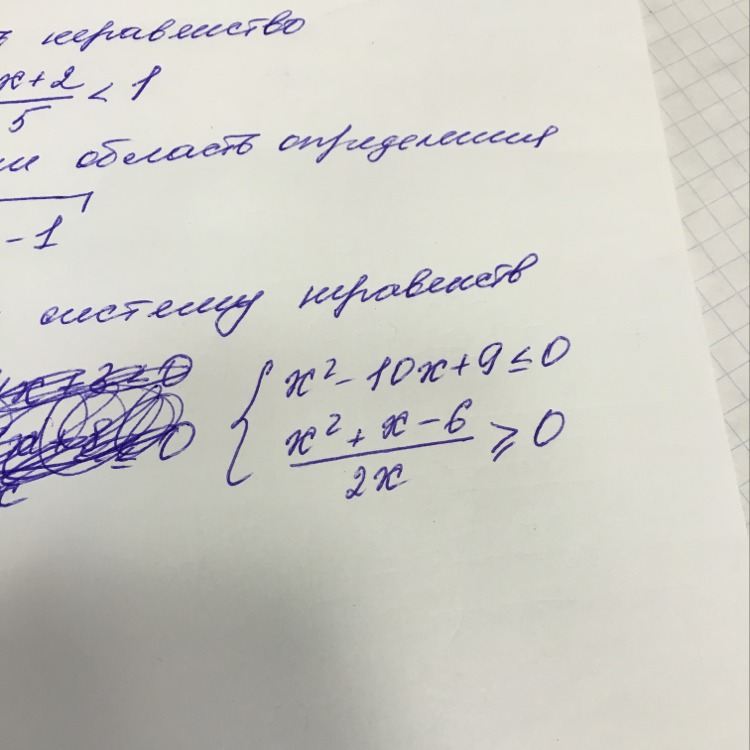 неравенство
x+2
/5 < 1
область определения
-1
систему неравенств
{ x² - 10x + 9 ≤ 0
(x² + x - 6)/2x ≥ 0